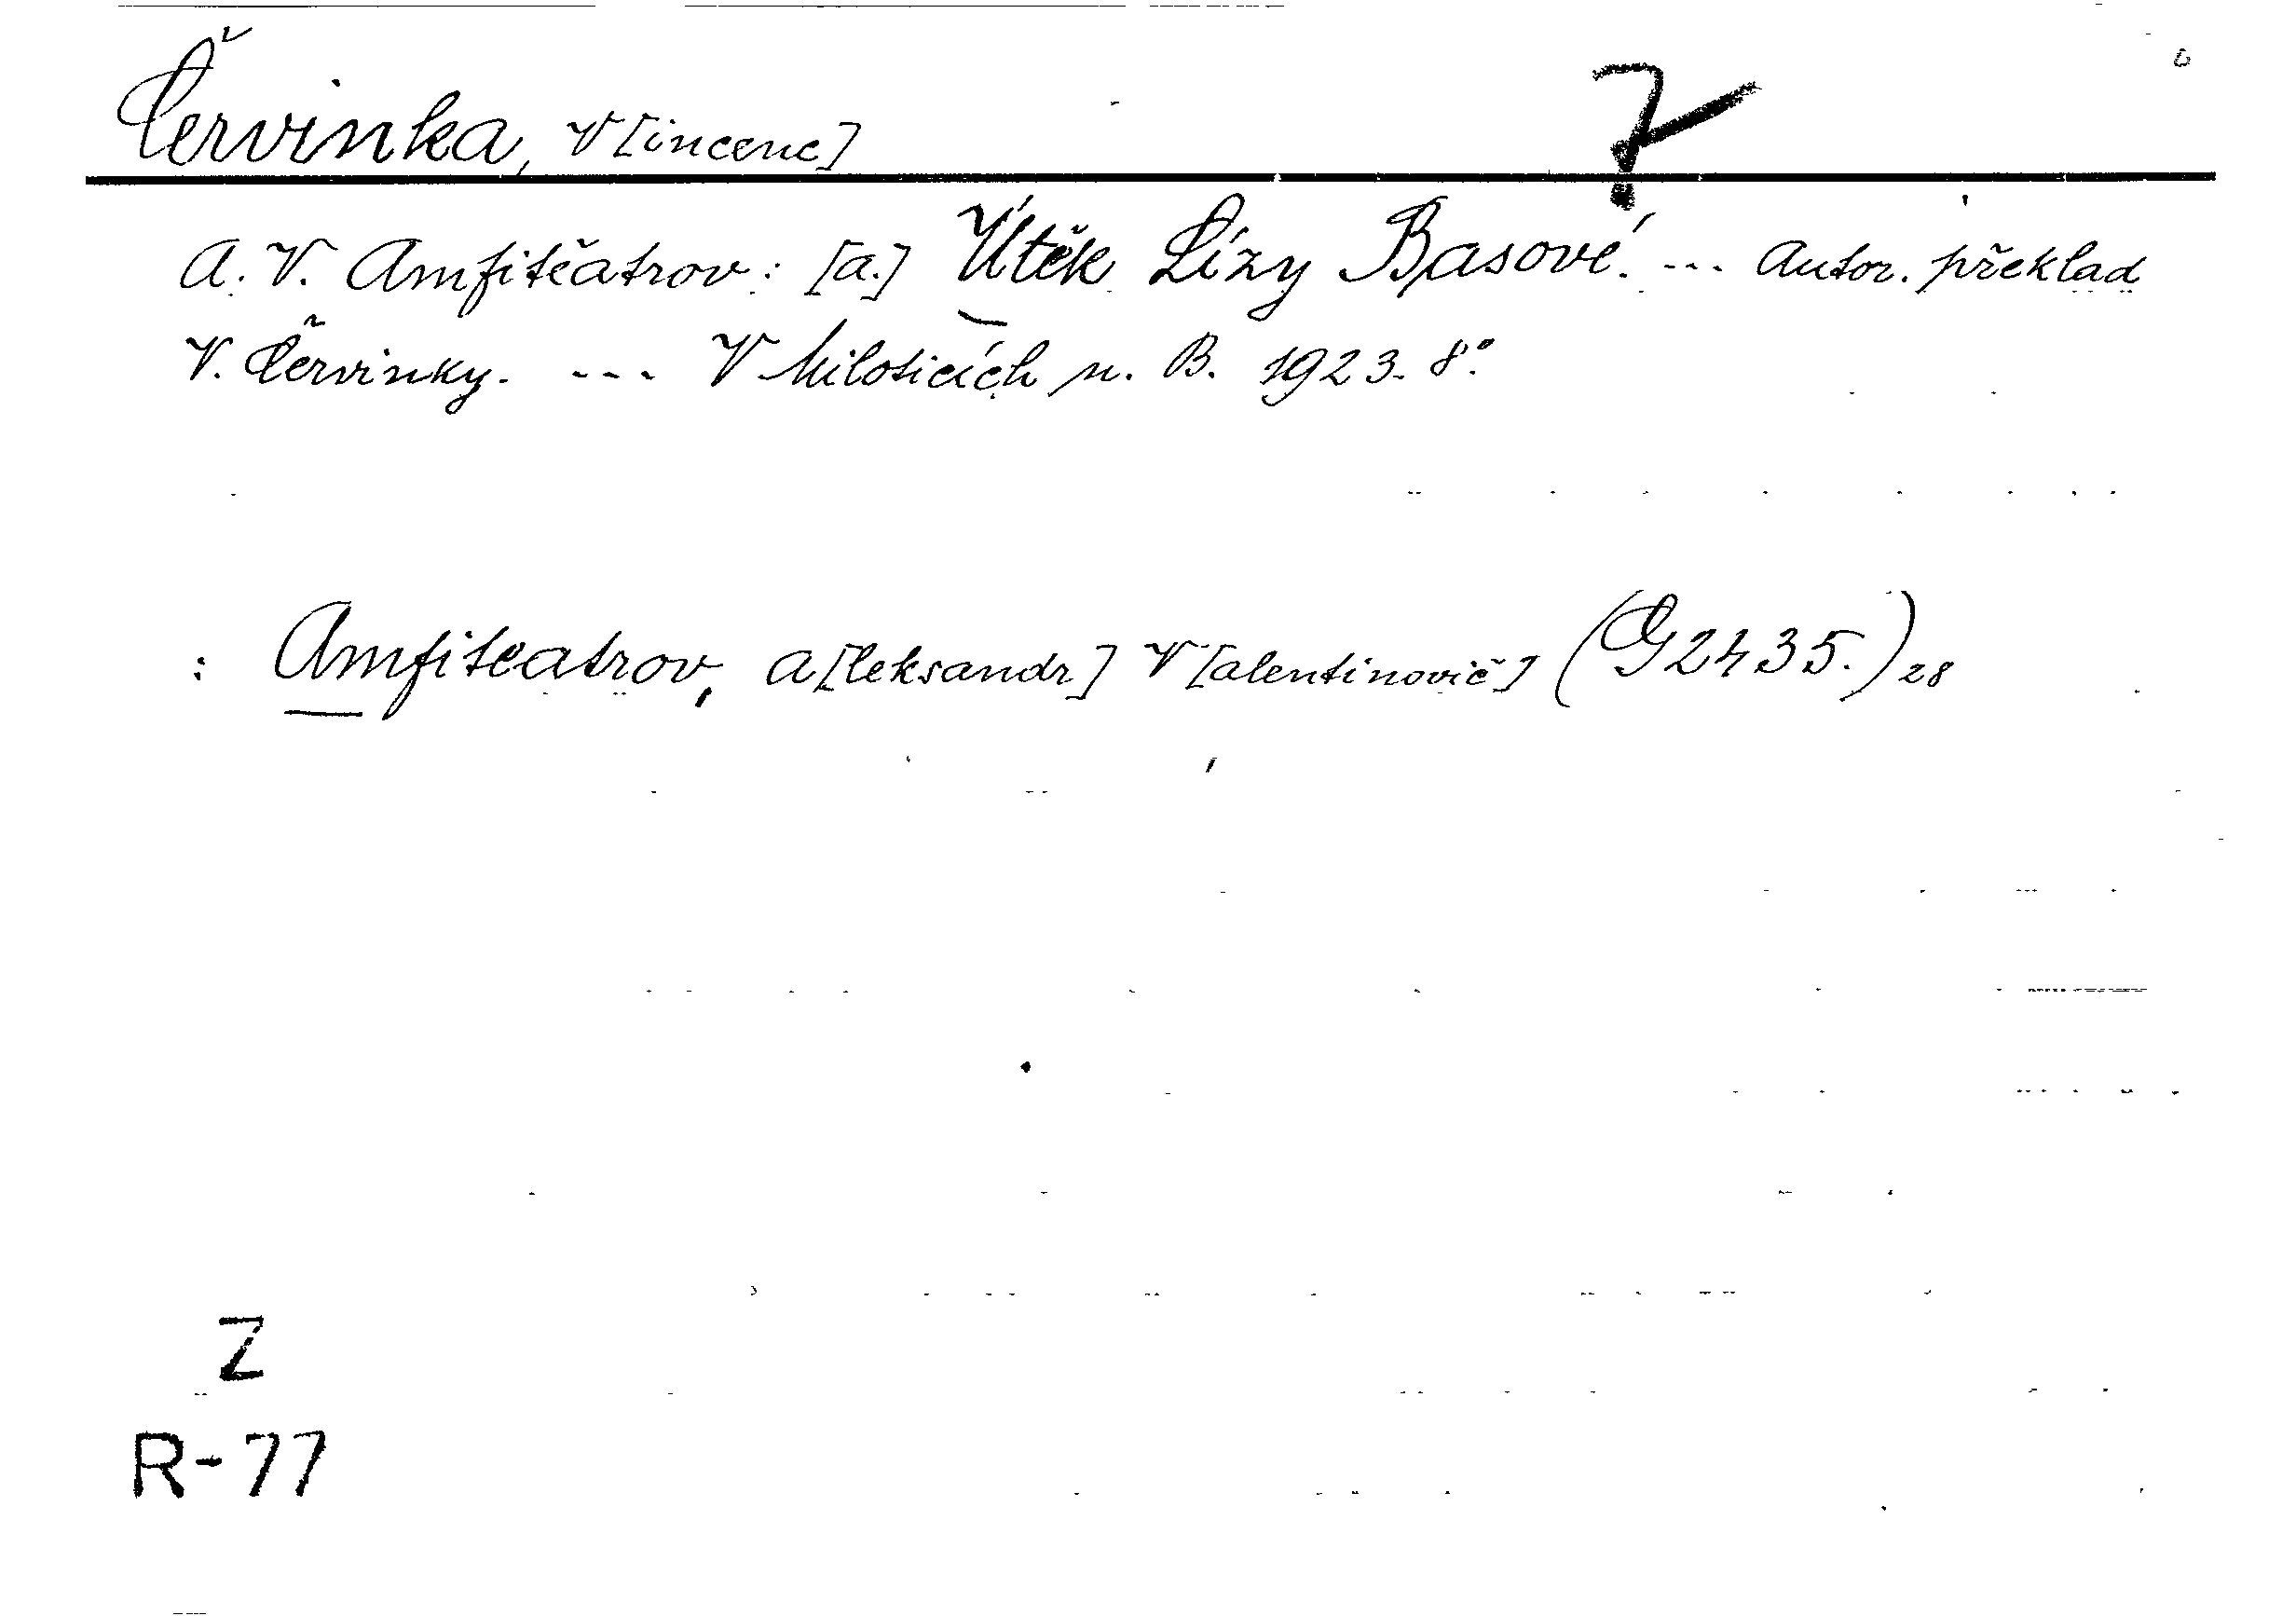 Červinka, V[incenc]
A. V. Amfitěatrov: [a.] Útěk Lízy Basové. ... Autor. překlad
V. Červinky. ... V Miloticích n. B. 1923. 8°.
: Amfiteatrov, A[leksandr] V[alentinovič] (G2435.) 28
Z
R-77